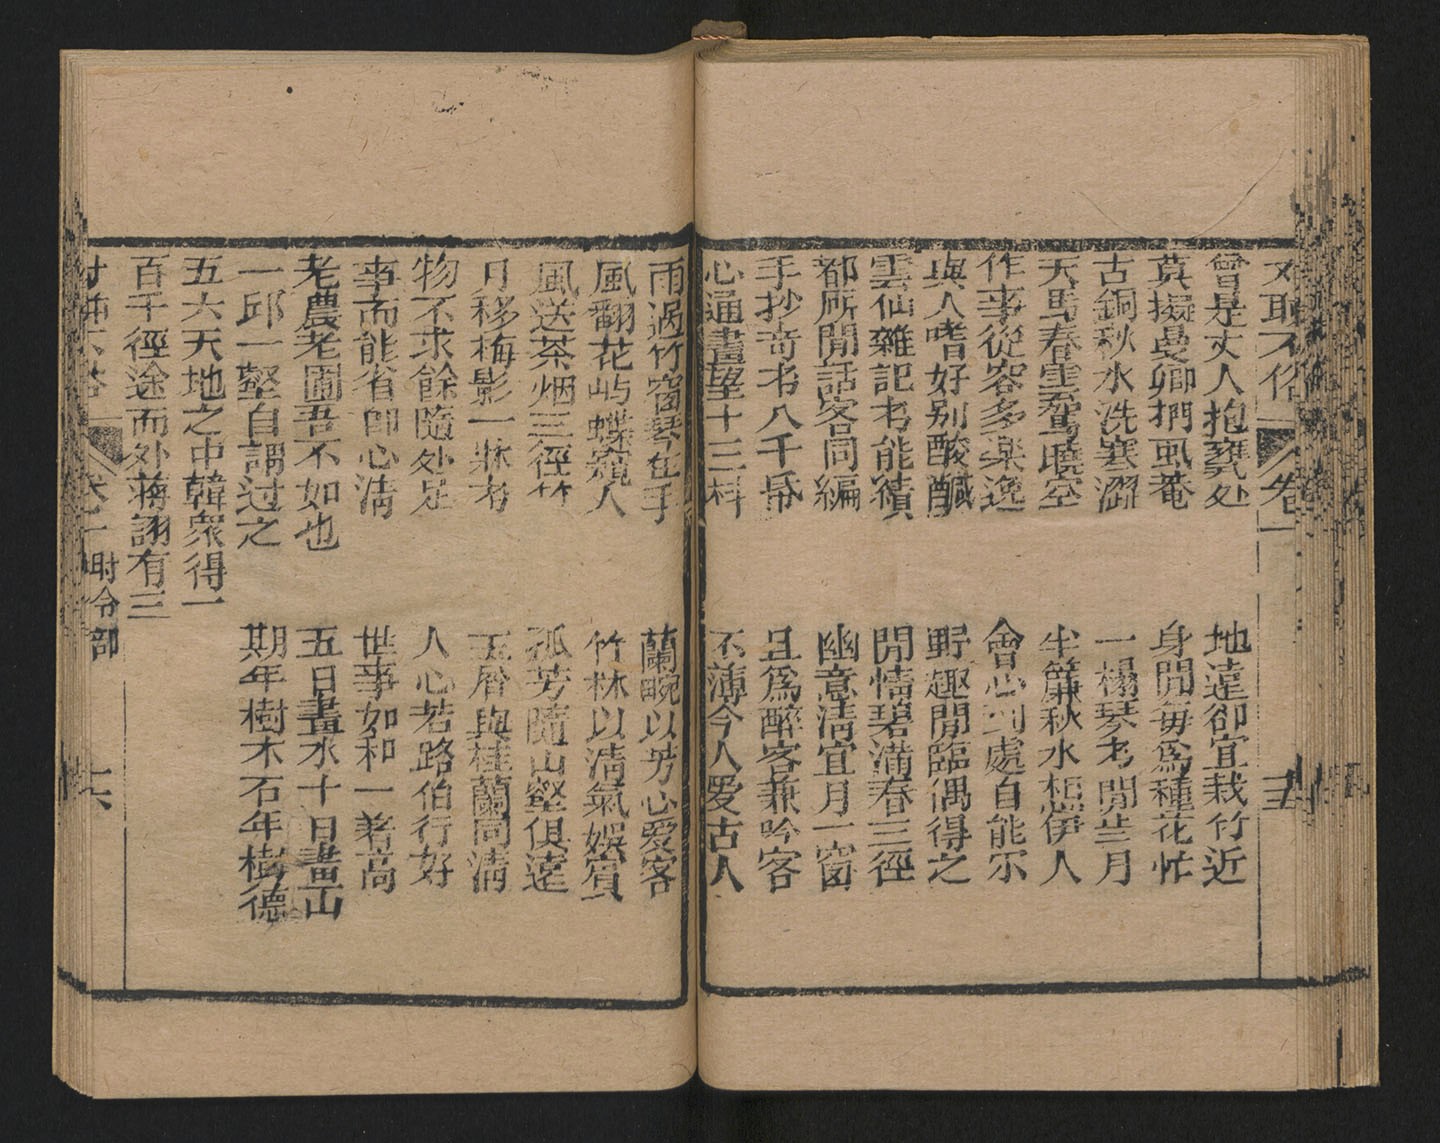 不俗 卷一 十五
曾是丈人抱甕处
地遠卻宜栽竹近
莫擬曼卿捫虱菴
身閒每爲種花忙
古銅秋水洗寒澀
一榻琴书閒半月
天馬春雲騖曉空
半簾秋水想伊人
作事從容多楽逸
會心到處自能尓
與人嗜好别酸醎
野趣閒臨偶得之
雲仙雜記书能續
閒情碧滿春三徑
都厛閒話客同編
幽意清宜月一窗
手抄奇书八千帋
且爲醉客兼吟客
心通畫望十三科
不薄今人爱古人
雨過竹窗琴在手
蘭畹以芳心爱客
風翻花屿蝶窺人
竹林以清氣娛賓
風送茶烟三徑竹
孤芳隨山壑俱遠
月移梅影一牀书
玉屑與桂蘭同清
物不求餘隨处足
人心若路伯行好
事而能省卽心清
世事如和一著高
老農老圃吾不如也
五日畫水十日畫山
一邱一壑自謂过之
期年樹木百年樹德
五六天地之中韓衆得一
百千徑途而外蔣詡有三
不俗 時令部 十六